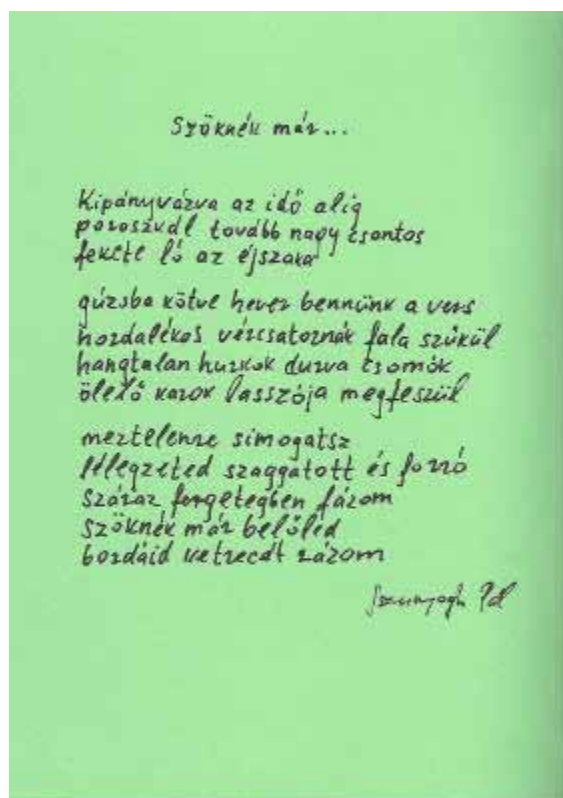 Szöknék már...
Kipányvázva az idő alig
poroszkál tovább nagy csontos
fekete ló az éjszaka
gúzsba kötve hever bennünk a vers
hordalékos vércsatornák fala szűkül
hangtalan hurkok durva csomók
ölelő karok lasszója megfeszül
meztelenre simogatsz
lélegzeted szaggatott és forró
száraz fergetegben fázom
szöknék már belőled
bordáid ketrecét rázom
Szunyogh Pál